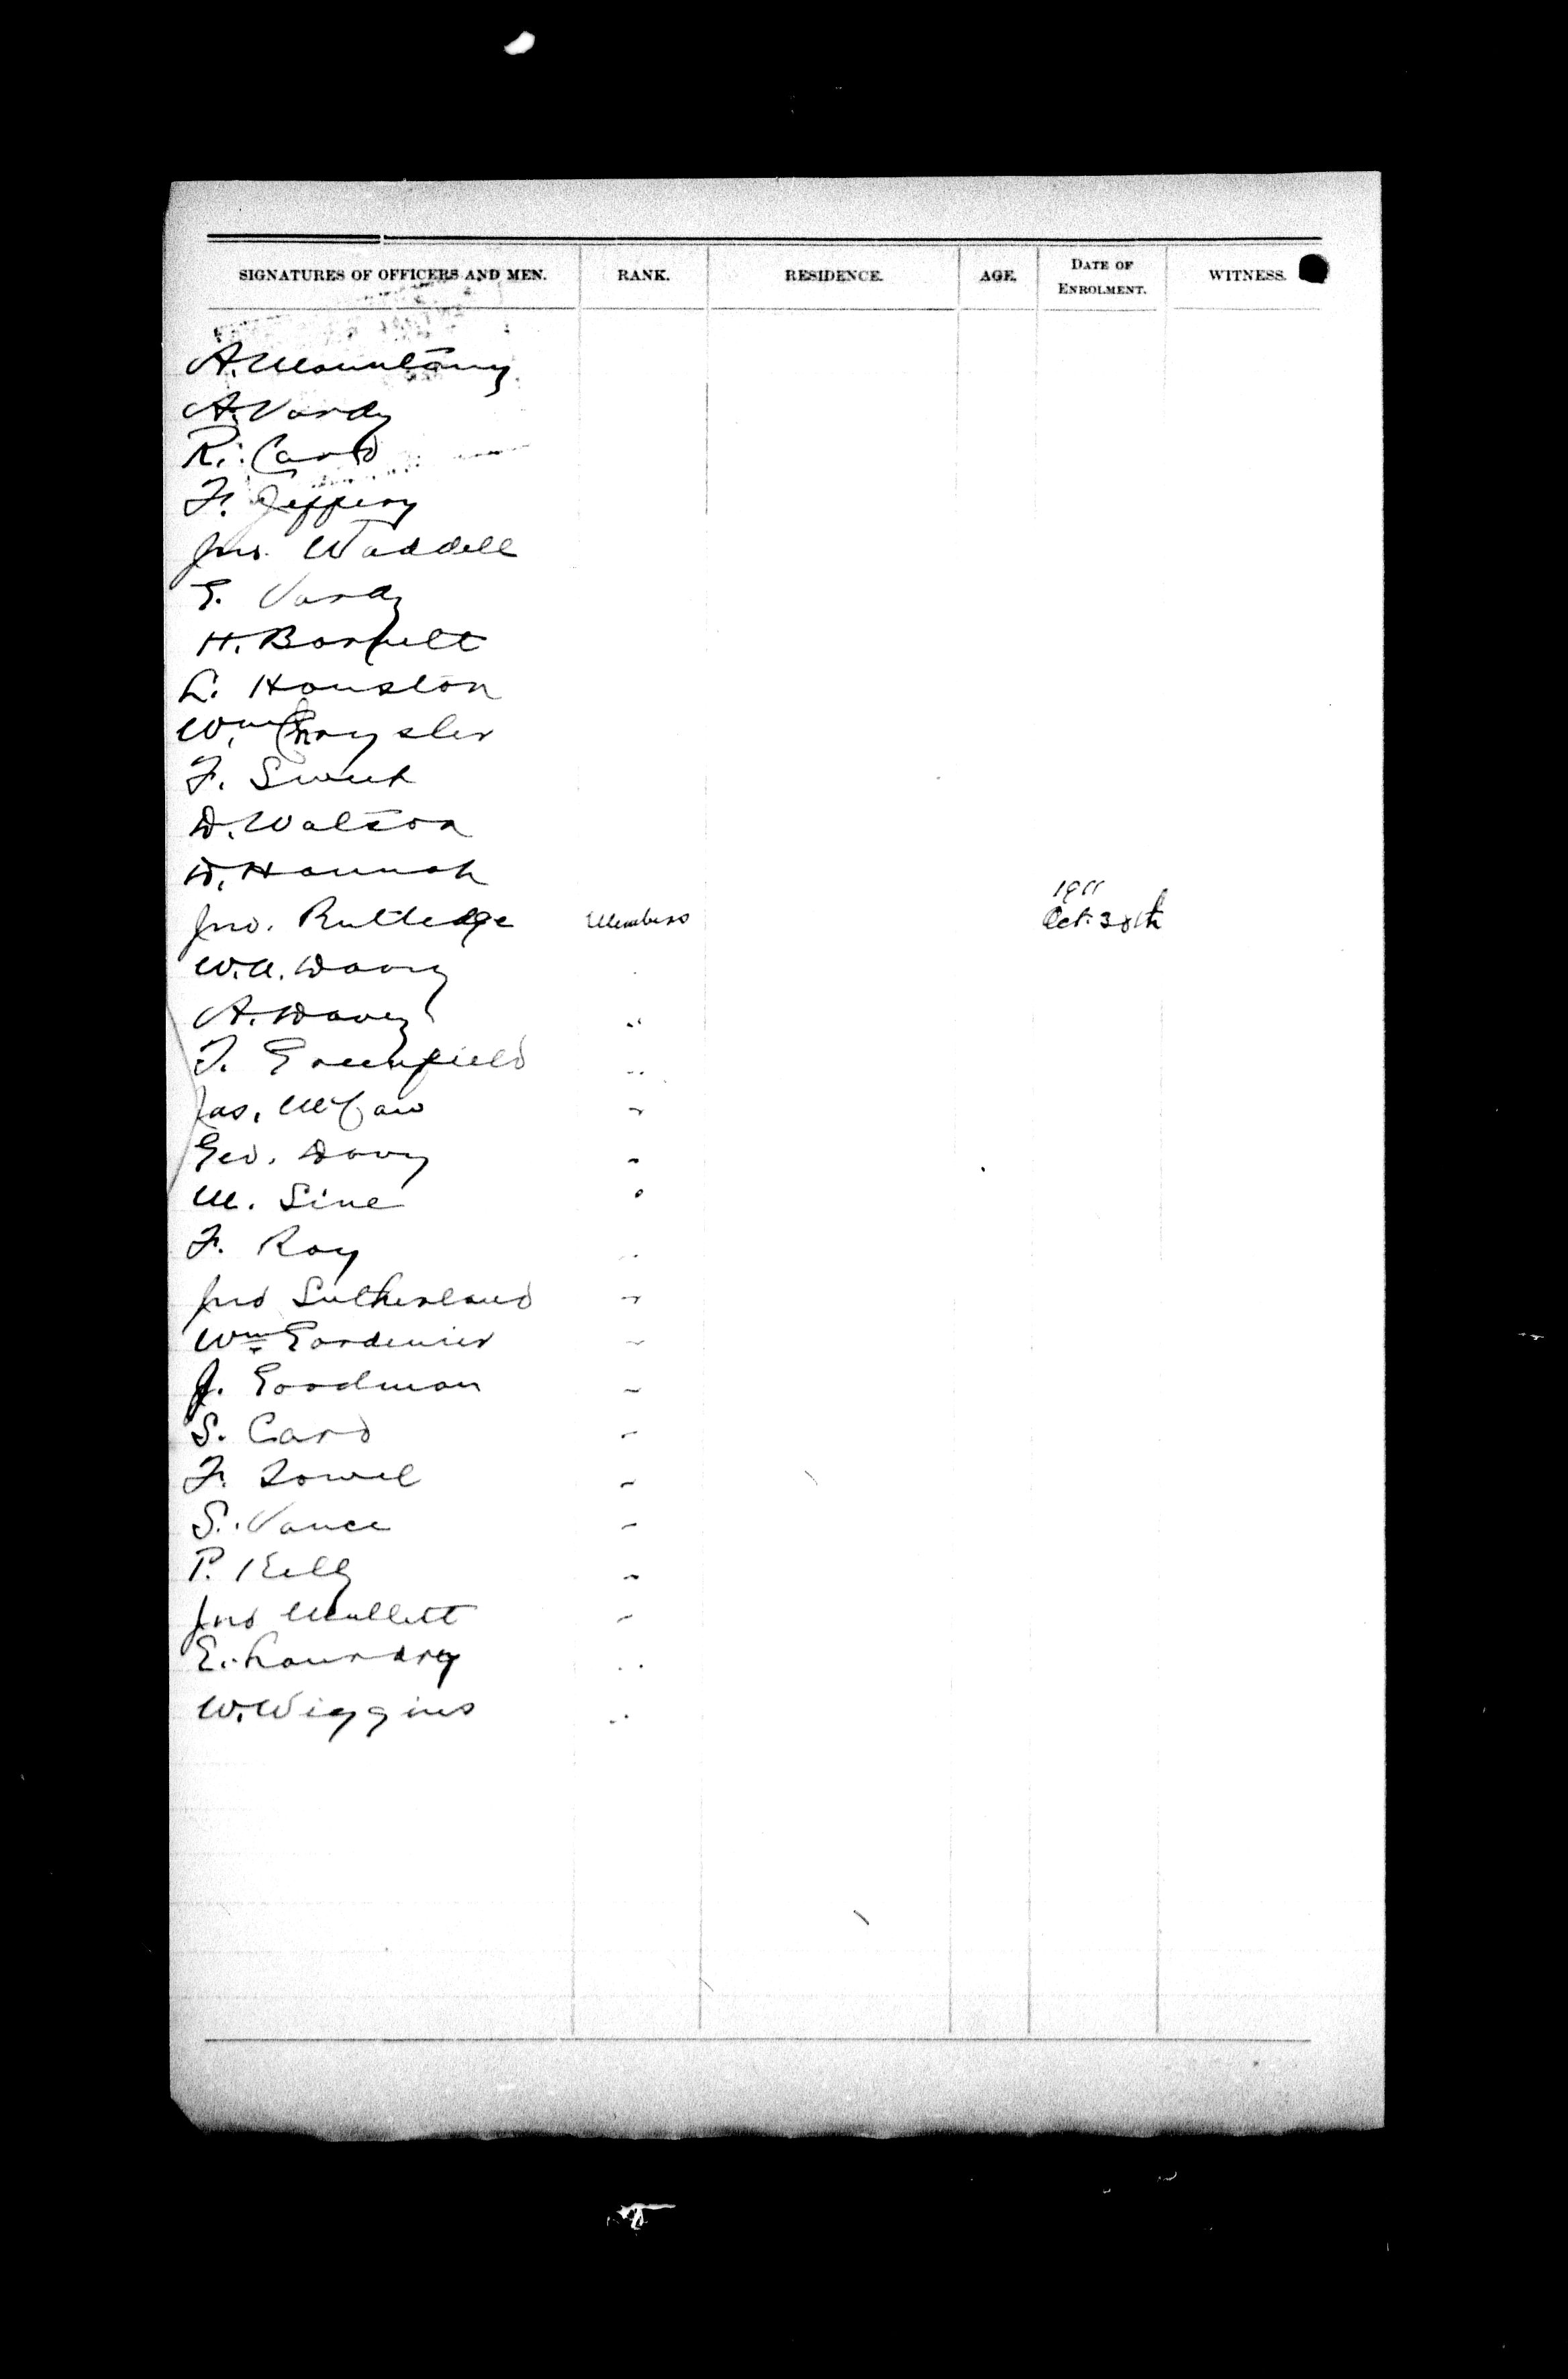 SIGNATURES OF OFFICERS AND MEN. RANK. RESIDENCE. AGE. DATE OF ENROLMENT. WITNESS.
A. Mountany
A. Vardy
R. Card
F. Jeffery
Jno. Waddell
E. Vardy
H. Barnett
L. Houston
Wm. Chrysler
F. Sweet
D. Watson
D. Hannah
1911
Jno. Rutledge Members Oct. 30th
W.A. Davy
A. Davey "
F. Greenfield "
Jas. McCaw "
Geo. Davy "
M. Sine "
F. Ray "
Jno Sutherland "
Wm Gardenier "
J. Goodman "
S. Card "
F. "
S. Vance "
P. Kelly "
Jno Mullett "
E. "
W. Wiggins "